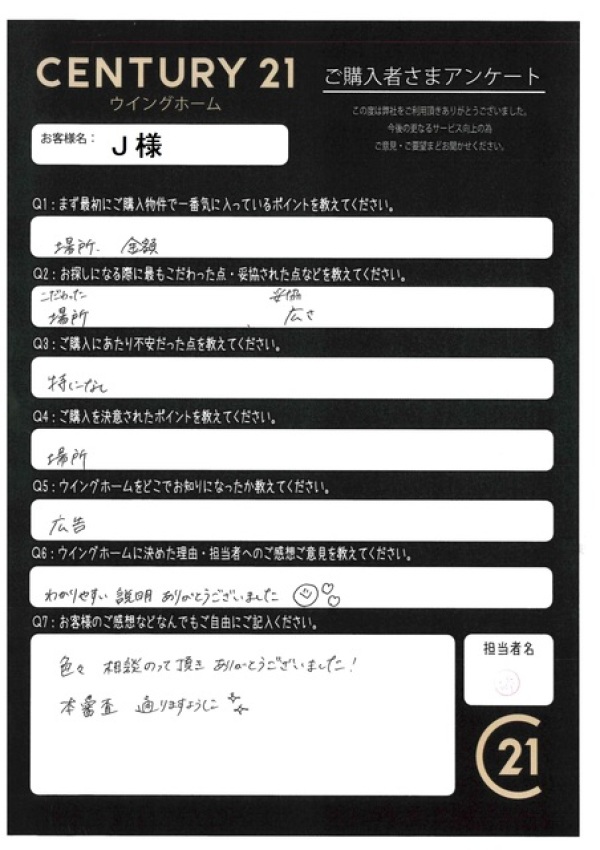 CENTURY 21
ウイングホーム
ご購入者さまアンケート
この度は弊社をご利用頂きありがとうございました。
今後の更なるサービス向上の為
ご意見・ご要望まどお聞かせください。
お客様名: J様
Q1:まず最初にご購入物件で一番気に入っているポイントを教えてください。
場所、金額
Q2:お探しになる際に最もこだわった点・妥協された点などを教えてください。
こだわった 妥協
場所 、 広さ
Q3:ご購入にあたり不安だった点を教えてください。
特になし
Q4:ご購入を決意されたポイントを教えてください。
場所
Q5:ウイングホームをどこでお知りになったか教えてください。
広告
Q6:ウイングホームに決めた理由・担当者へのご感想ご意見を教えてください。
わかりやすい 説明 ありがとうございました
Q7:お客様のご感想などなんでもご自由にご記入ください。
色々 相談のって頂き ありがとうございました!
本審査 通りますように
担当者名
C21